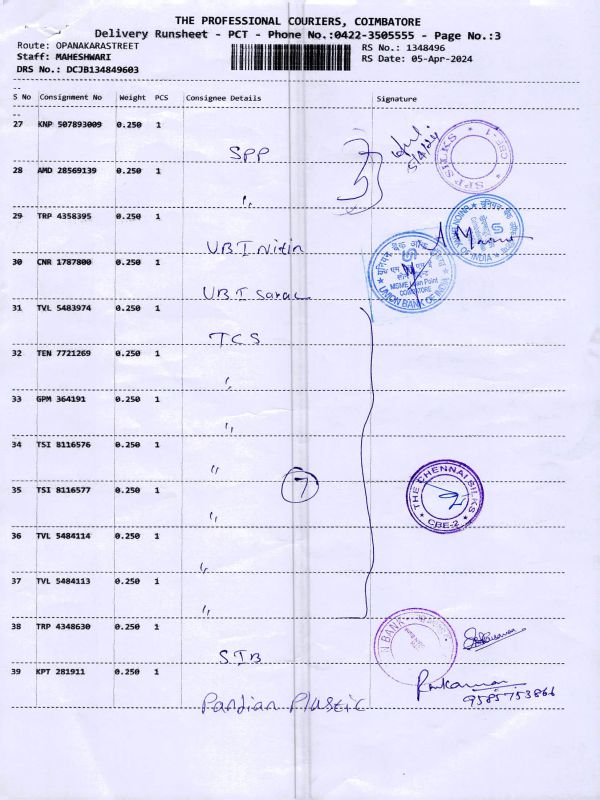 THE PROFESSIONAL COURIERS, COIMBATORE
Delivery Runsheet - PCT - Phone No.:0422-3505555 - Page No.:3
Route: OPANAKARASTREET
RS No.: 1348496
Staff: MAHESHWARI
RS Date: 05-Apr-2024
DRS No.: DCJB134849603
S No Consignment No Weight PCS Consignee Details Signature
27 KNP 507893009 0.250 1
SPP
5/4/24
SPP SILKS * CBE-1 *
28 AMD 28569139 0.250 1
"
3
29 TRP 4358395 0.250 1
UBI Nitin
30 CNR 1787800 0.250 1
UBI Sarac
यूनियन बैंक ऑफ
MSME Loan Point
COIMBATORE
UNION BANK OF INDIA
31 TVL 5483974 0.250 1
TCS
32 TEN 7721269 0.250 1
"
33 GPM 364191 0.250 1
"
34 TSI 8116576 0.250 1
"
7
35 TSI 8116577 0.250 1
"
THE CHENNAI SILKS
* CBE-2 *
36 TVL 5484114 0.250 1
"
37 TVL 5484113 0.250 1
"
38 TRP 4348630 0.250 1
SIB
N BANK
39 KPT 281911 0.250 1
Pandian Plastic
9585753866